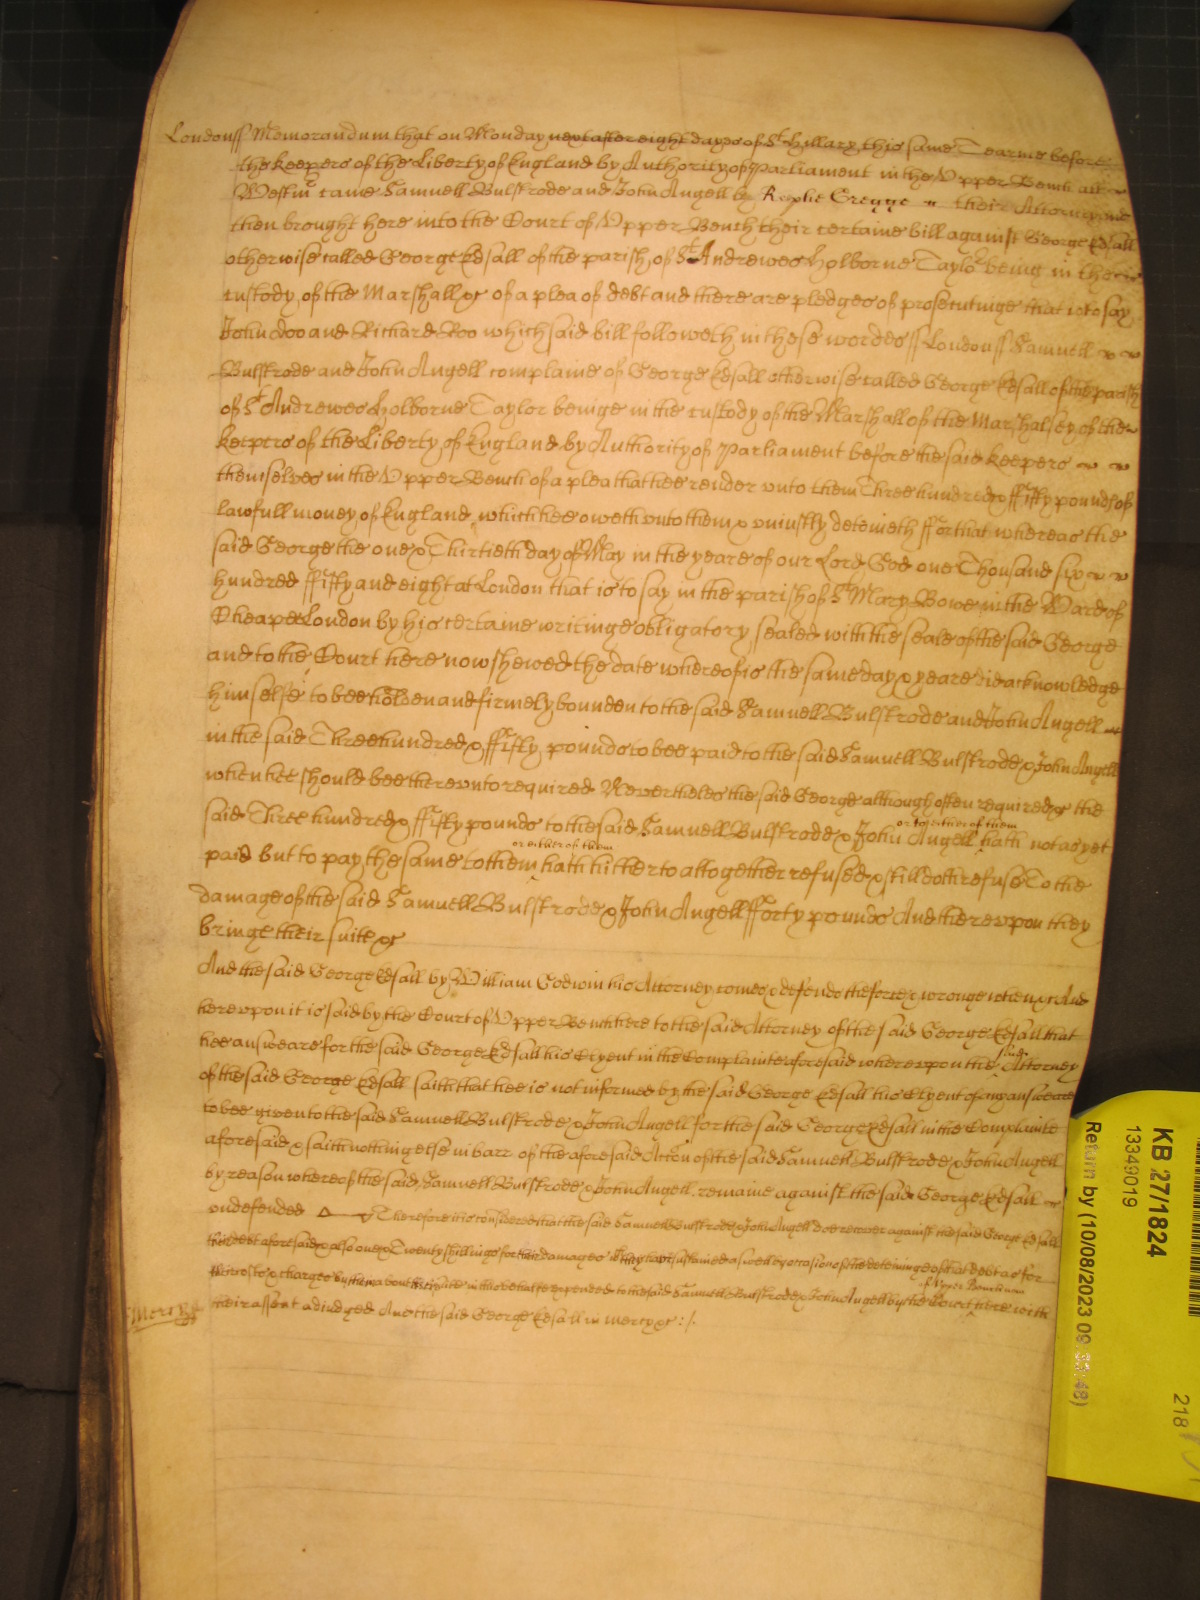 Londonss Memorandum that on Monday next after eight dayes of St Hillary this same Tearme before
the Keepers of the Liberty of England by Authority of Parliament in the Upper Bench att
Westmr came Samuell Bulstrode and John Angell by Raphe Gregge their Attorney and
then brought here into the Court of Upper Bench their certaine bill against George Edsall
otherwise called George Edsall of the parish of St Andrewes Holborne Taylor being in the
custody of the Marshall &c of a plea of debt and there are pledges of prosecutinge that is to say
John doo and Richard Roo which said bill followeth in these wordes ss Londonss Samuell
Bulstrode and John Angell complaine of George Edsall otherwise called George Edsall of the parish
of St Andrewes Holborne Taylor beinge in the custody of the Marshall of the Marshalsey of the
keepers of the Liberty of England by Authority of Parliament before the said keepers
themselves in the Upper Bench of a plea that hee render unto them Three hundred & ffifty pounds of
lawfull money of England which hee oweth unto them & uniustly deteineth ffor that whereas the
said George the one & Thirtieth day of May in the yeare of our Lord God one Thousand six
hundred ffifty and eight at London that is to say in the parish of St Mary Bowe in the Ward of
Cheape London by his certaine writinge obligatory sealed with the seale of the said George
and to the Court here now shewed the date whereof is the same day & yeare did acknowledge
himselfe to bee holden and firmely bounden to the said Samuell Bulstrode and John Angell
in the said Three hundred & ffifty pounds to bee paid to the said Samuell Bulstrode & John Angell
when hee should bee thereunto required Neverthelesse the said George although often required &c the
said Three hundred & ffifty pounds to the said Samuell Bulstrode & John Angell or to either of them hath not as yet
paid but to pay the same to them or either of them hath hitherto altogether refused & still doth refuse To the
damage of the said Samuell Bulstrode & John Angell fforty pounds And thereupon they
bringe their suite &c
And the said George Edsall by William Godwin his Attorney comes & defends the force & wronge when &c And
hereupon it is said by the Court of Upper Bench here to the said Attorney of the said George Edsall that
hee answeare for the said George Edsall his Clyent in the Complainte aforesaid whereupon the said Attorney
of the said George Edsall saith that hee is not informed by the said George Edsall his Clyent of any answeare
to bee given to the said Samuell Bulstrode & John Angell for the said George Edsall in the Complainte
aforesaid & saith nothing else in barr of the aforesaid Accon of the said Samuell Bulstrode & John Angell
by reason whereof the said Samuell Bulstrode & John Angell remaine against the said George Edsall
undefended Therefore it is considered that the said Samuell Bulstrode & John Angell doe recover against the said George Edsall
their debt aforesaid & also one & Twenty shillings for their damages wch they have sustained aswell by occasion of the deteininge of that debt as for
their costs & charges by them about their suite in this behalfe expended to the said Samuell Bulstrode & John Angell by the Court of Upper Bench here with
Mercy their assent adiudged And the said George Edsall in mercy &c :/.
KB 27/1824
13349019
Return by (10/08/2023 09:33:48)
218